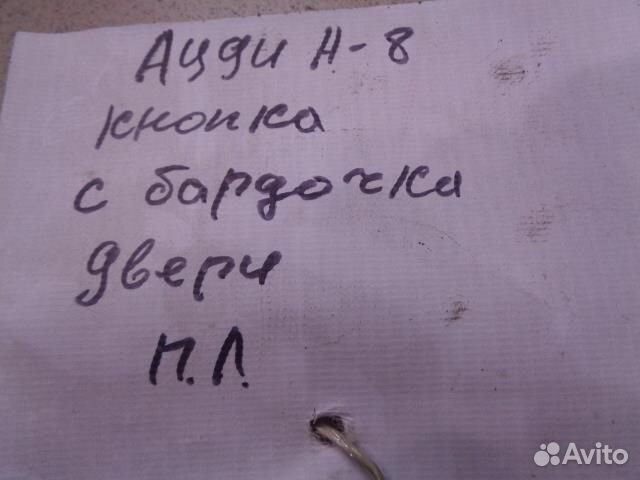 Ауди А-8
кнопка
с бардочка
двери
П.Л.
Avito